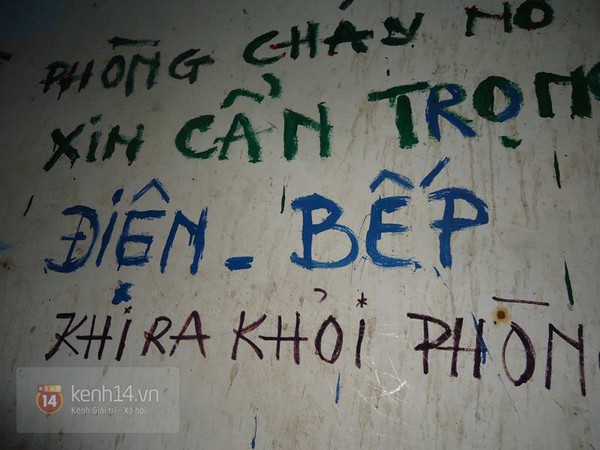 PHÒNG CHÁY NỔ
XIN CẨN TRỌNG
ĐIỆN - BẾP
KHI RA KHỎI PHÒNG
14 kenh14.vn
Kênh Giải trí - Xã hội